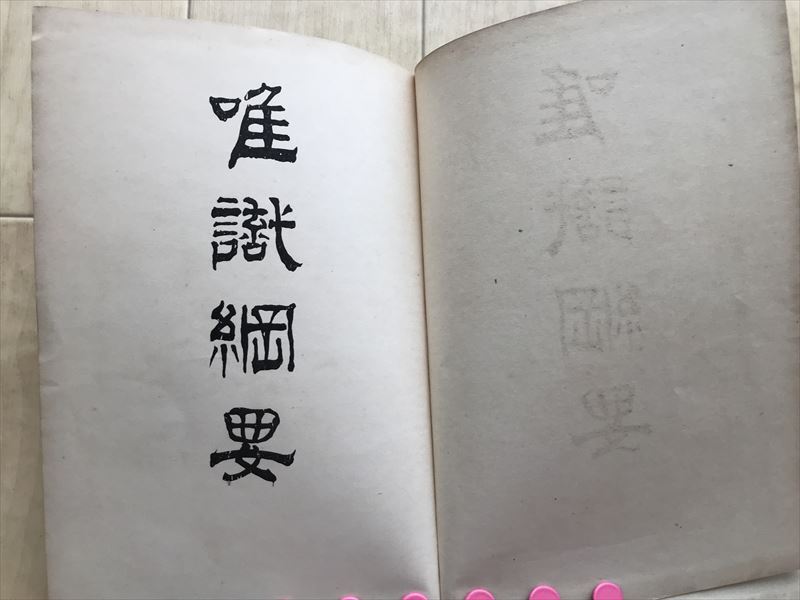 唯識綱要